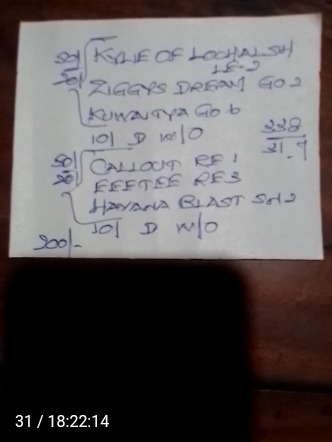 50/ KYLIE OF LOCHALSH
LE-2
20/ ZIGGYS DREAM GO 2
KUWAITYA GO 6
10/ D W/O
338
21.7
50/ CALLOUT RE 1
20/ EEETEE RE3
HAVANA BLAST SH 2
10/ D W/O
200/-
31 / 18:22:14